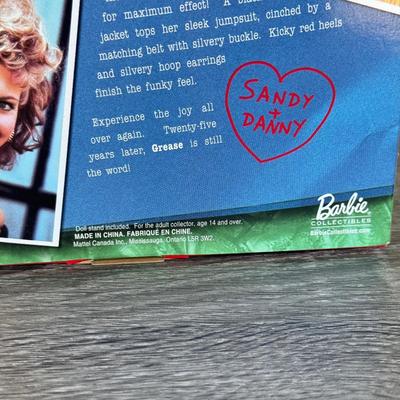 for maximum effect! A
jacket tops her sleek jumpsuit, cinched by a
matching belt with silvery buckle. Kicky red heels
and silvery hoop earrings
finish the funky feel.
Experience the joy all
over again. Twenty-five
years later, Grease is still
the word!
SANDY
+
DANNY
Doll stand included. For the adult collector, age 14 and over.
MADE IN CHINA. FABRIQUÉ EN CHINE.
Mattel Canada Inc., Mississauga, Ontario L5R 3W2.
Barbie
COLLECTIBLES
BarbieCollectibles.com